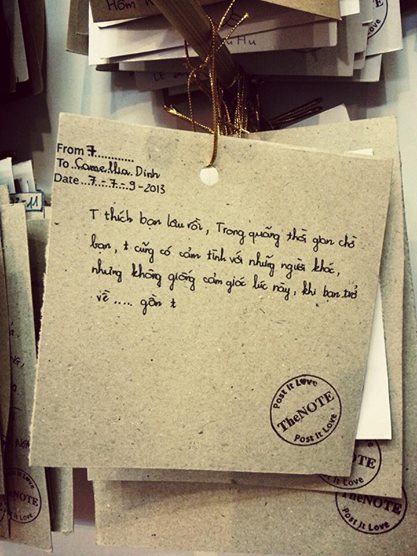 From 7
To Camellia Dinh
Date 7 - 7 - 9 - 2013
T thích bạn lâu rồi, Trong quãng thời gian chờ
bạn, t cũng có cảm tình với những người khác,
nhưng không giống cảm giác lúc này, khi bạn trở
về .... gần t
Post It Love
TheNOTE
Post It Love